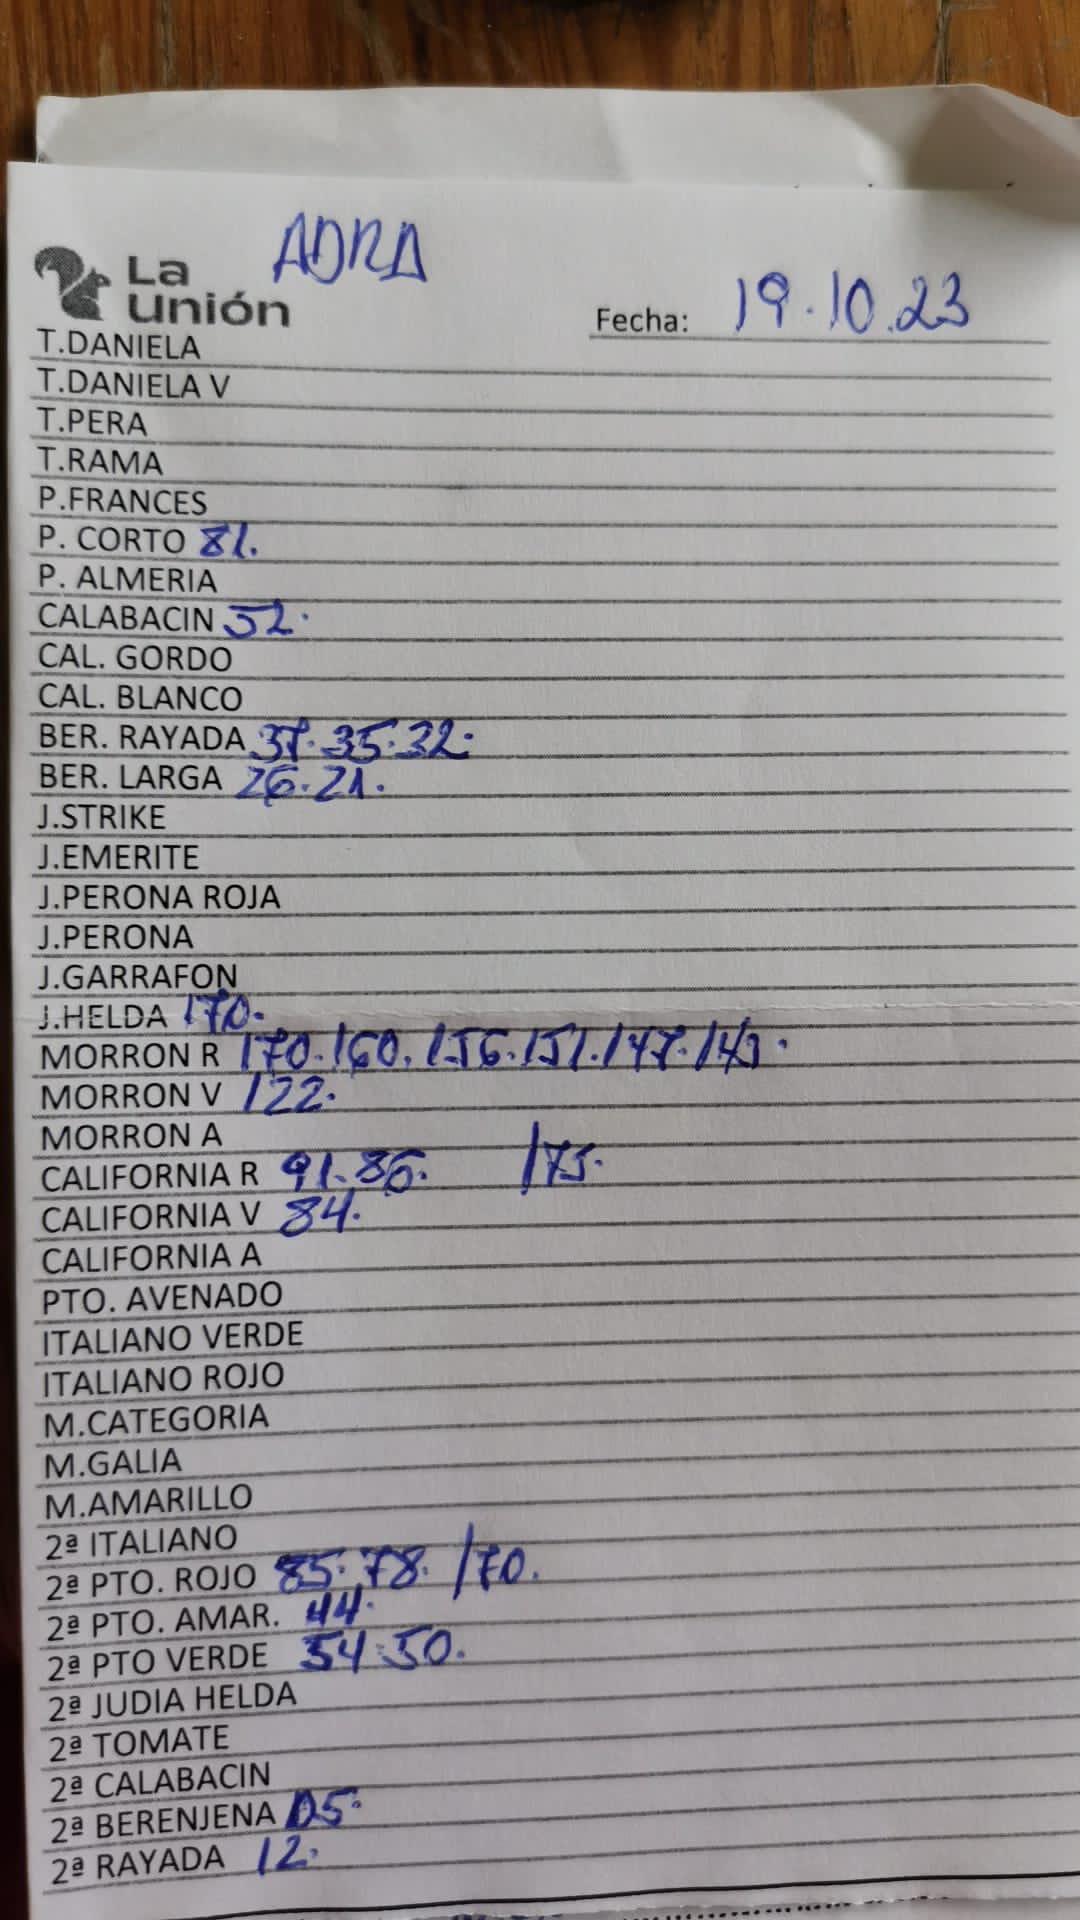 ADRA
La
Unión
Fecha: 19.10.23
T.DANIELA
T.DANIELA V
T.PERA
T.RAMA
P.FRANCES
P. CORTO 81.
P. ALMERIA
CALABACIN 52.
CAL. GORDO
CAL. BLANCO
BER. RAYADA 37.35.32.
BER. LARGA 26.21.
J.STRIKE
J.EMERITE
J.PERONA ROJA
J.PERONA
J.GARRAFON
J.HELDA 170.
MORRON R 170.160.156.151.147.143.
MORRON V 122.
MORRON A
CALIFORNIA R 91.86. /75.
CALIFORNIA V 84.
CALIFORNIA A
PTO. AVENADO
ITALIANO VERDE
ITALIANO ROJO
M.CATEGORIA
M.GALIA
M.AMARILLO
2ª ITALIANO
2ª PTO. ROJO 85.78. /70.
2ª PTO. AMAR. 44.
2ª PTO VERDE 54.50.
2ª JUDIA HELDA
2ª TOMATE
2ª CALABACIN
2ª BERENJENA 05.
2ª RAYADA 12.